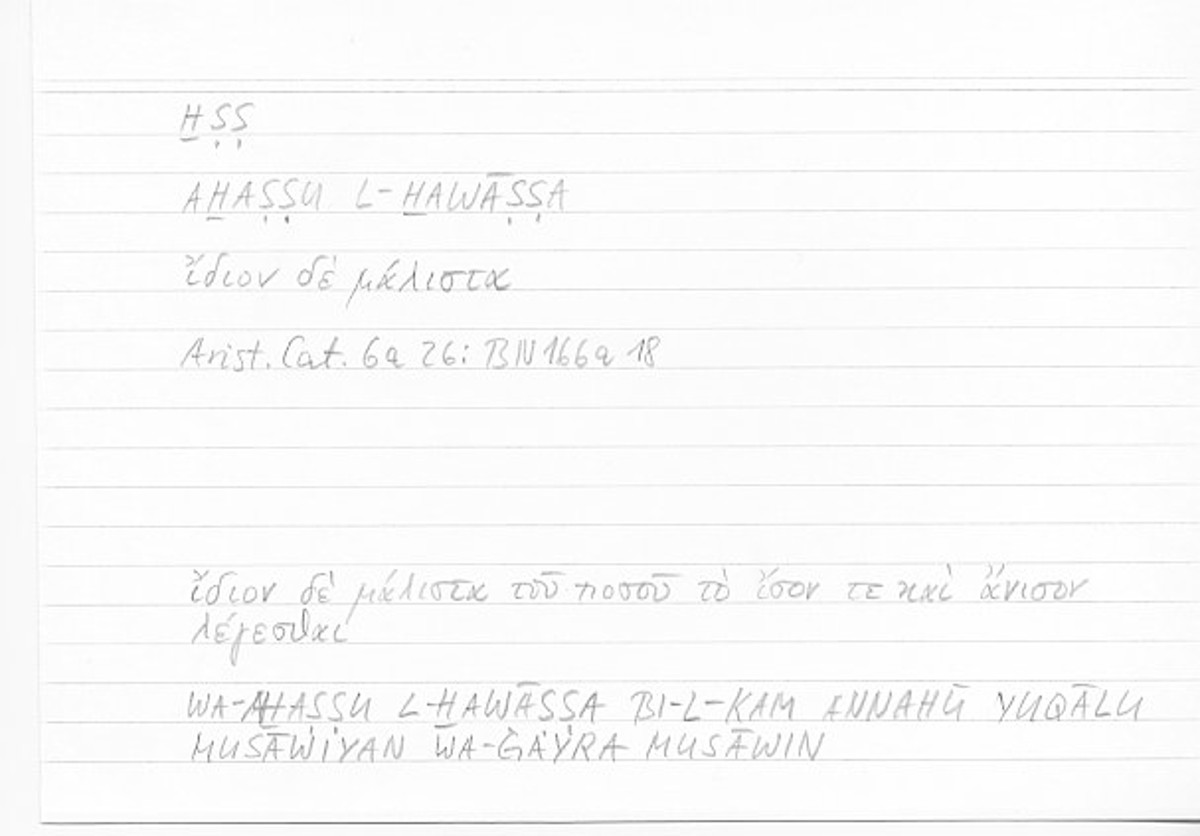 ḪṢṢ
AḪAṢṢU L-ḪAWĀṢṢA
ἴδιον δὲ μάλιστα
Arist. Cat. 6a 26: BN 166a 18
ἴδιον δὲ μάλιστα τοῦ ποσοῦ τὸ ἴσον τε καὶ ἄνισον
λέγεσθαι
WA-AḪAṢṢU L-ḪAWĀṢṢA BI-L-KAM ANNAHŪ YUQĀLU
MUSĀWIYAN WA-ĠAYRA MUSĀWIN